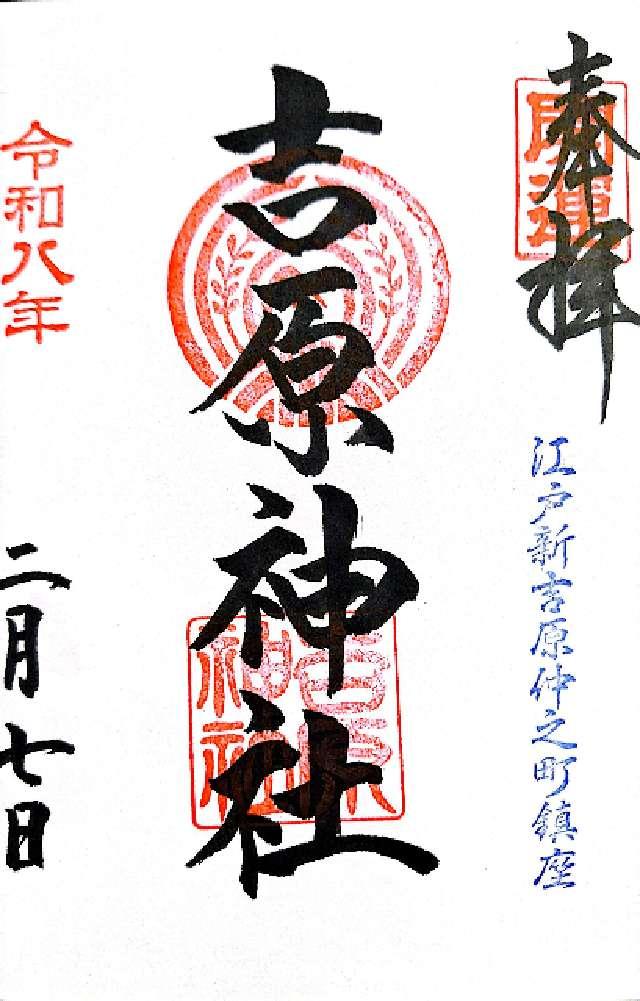 奉拝
開運
江戸新吉原仲之町鎮座
吉原神社
吉原神社
令和八年
二月七日